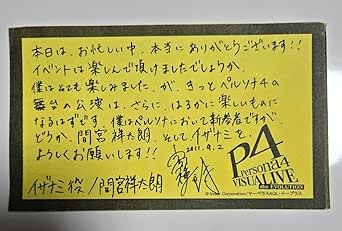 本日は、お忙しい中、本当にありがとうございます!!
イベントは楽しんで頂けましたでしょうか。
僕はとても楽しみました、が、きっとペルソナ4の
舞台の公演は、さらに、はるかに楽しいものに
なるはずです。僕はペルソナにおいて新参者ですが、
どうか、間宮祥太朗、そしてイザナミを、
よろしくお願いします!!
2011.9.2
イザナミ役/間宮祥太朗
P4
Persona4
VISUALIVE
the EVOLUTION
© Index Corporation/マーベラスAQL・イープラス